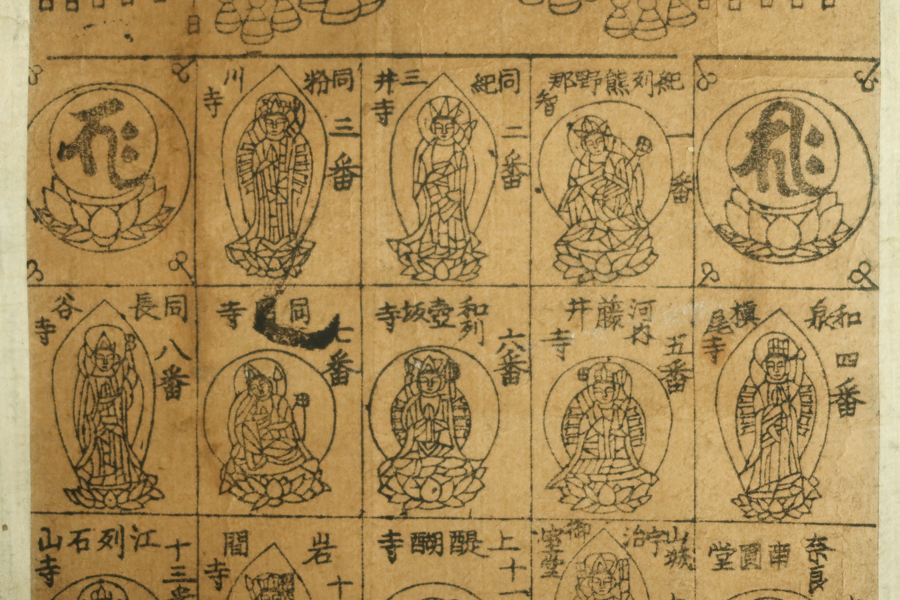 一番
紀列熊野那智
二番
同紀三井寺
三番
同粉川寺
四番
和泉槇尾寺
五番
河内藤井寺
六番
和列壺坂寺
七番
同寺
八番
同長谷寺
奈良南圓堂
山城宇治御室堂
上醍醐寺
十一
岩間寺
十
江列石山寺
十三番